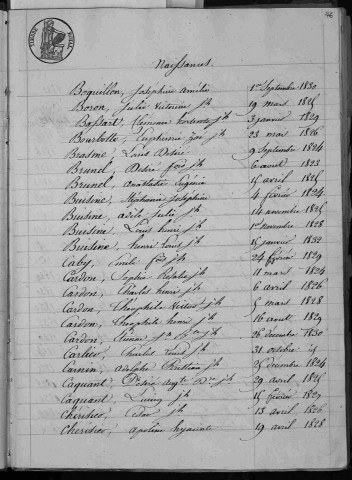 44
TIMBRE ROYAL
Naissances.
Bequillon, Josephine Amélie 1er Septembre 1830
Boron, Julie Victorine jh 19 mars 1825
Bassart, Clemence jh 3 janvier 1829
Bourbotte, Euphrosine jh 23 mai 1826
Brasme, Louis Desiré 9 Septembre 1824
Brunel, Desiré jh 6 avril 1823
Brunel, Anastasie Eugénie 15 avril 1825
Buisine, Stéphanie Josephine 4 février 1824
Buisine, Adèle Julie jh 14 novembre 1825
Buisine, Louis henri jh 1er novembre 1828
Buisine, henri Louis jh 15 janvier 1832
Caby, Emile jh 24 février 1829
Cardon, Sophie Rosalie jh 11 mars 1824
Cardon, Charles henri jh 6 avril 1826
Cardon, Théophile Victor jh 5 mars 1828
Cardon, Théophile henri jh 16 août 1829
Cardon, jh 26 décembre 1830
Carlier, Charles Louis jh 31 octobre
Carnin, Adolphe Christian jh 25 décembre 1824
Caquant, jh 29 avril 1825
Caquant, jh 15 février 1827
Chérisier, jh 13 avril 1826
Cherisier, apoline hyacinte 19 avril 1828